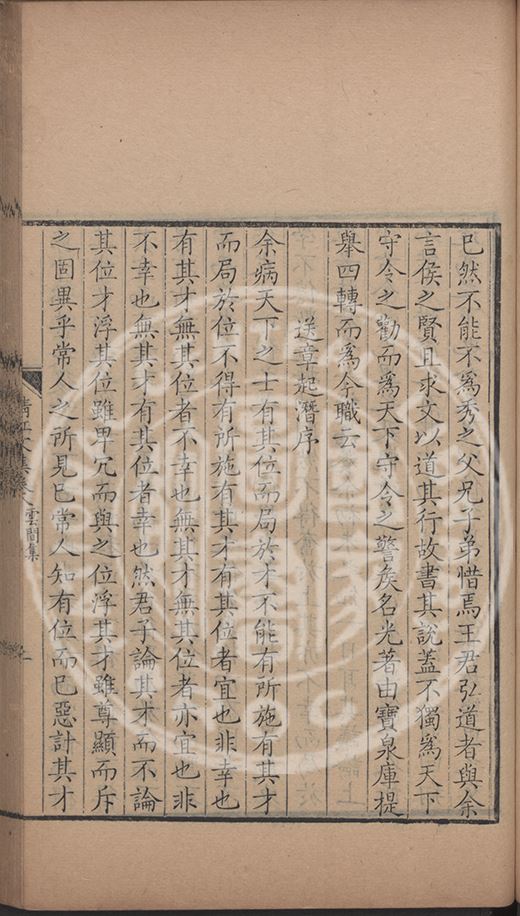 已然不能不爲秀之父兄子弟惜焉王君弘道者與余
言侯之賢且求文以道其行故書其說蓋不獨爲天下
守令之勸而爲天下守令之警矣名光著由寶泉庫提
舉四轉而爲今職云
送章起潛序
余病天下之士有其位而局於才不能有所施有其才
而局於位不得有所施有其才有其位者宜也非幸也
有其才無其位者不幸也無其才無其位者亦宜也非
不幸也無其才有其位者幸也然君子論其才而不論
其位才浮其位雖卑冗而與之位浮其才雖尊顯而斥
之固異乎常人之所見已常人知有位而已惡計其才
清江文集 雲間集